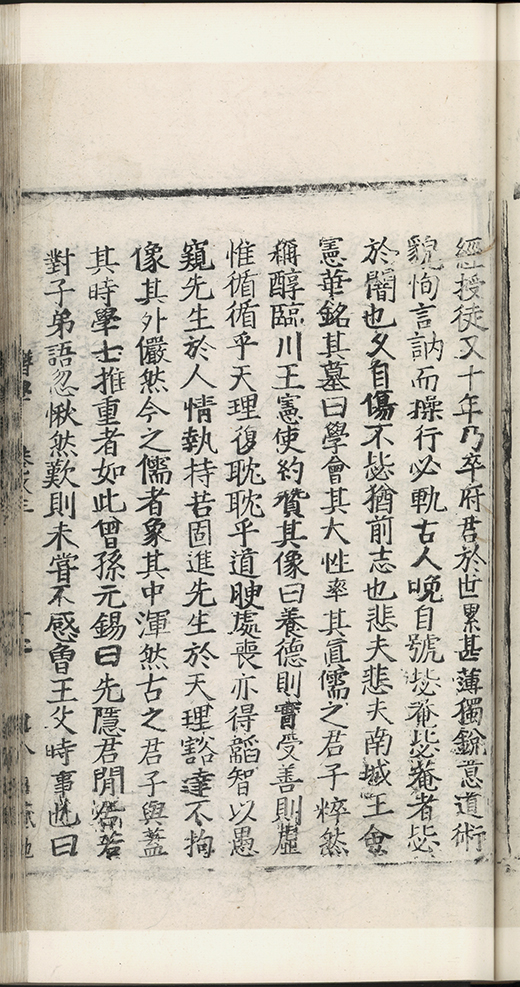 經授徒又十年乃卒府君於世累甚薄獨銳意道術
貌恂言訥而操行必軌古人晚自號毖菴毖菴者毖
於闇也夕自傷不毖猶前志也悲夫悲夫南城王會
憲華銘其墓曰學會其大性率其眞儒之君子粹然
稱醇臨川王憲使約贊其像曰養德則實受善則虛
惟循循乎天理復耽耽乎道腴處喪亦得韜智以愚
窺先生於人情執持若固進先生於天理豁達不拘
像其外儼然今之儒者象其中渾然古之君子與蓋
其時學士推重者如此曾孫元錫曰先隱君閒
對子弟語忽愀然歎則未嘗不感曾王父時事也曰